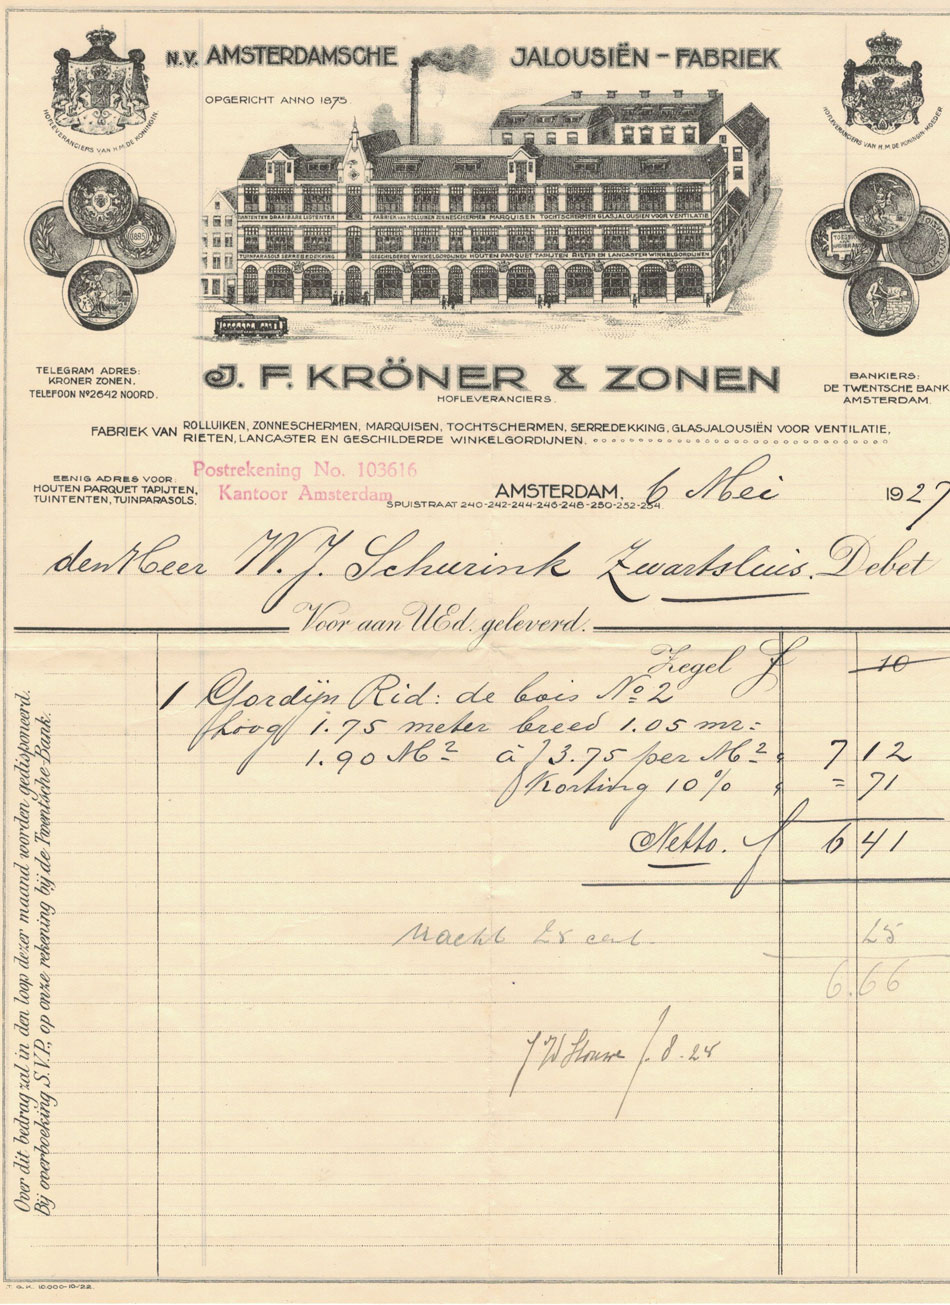 N.V. AMSTERDAMSCHE JALOUSIËN - FABRIEK
OPGERICHT ANNO 1875.
HOFLEVERANCIERS VAN H.M. DE KONINGIN.
HOFLEVERANCIERS VAN H.M. DE KONINGIN MOEDER
1895
TUINTENTEN DRAAIBARE LIGTENTEN
FABRIEK VAN ROLLUIKEN ZONNESCHERMEN MARQUISEN TOCHTSCHERMEN GLASJALOUSIEN VOOR VENTILATIE
TUINPARASOLS SERREBEDEKKING
GESCHILDERDE WINKELGORDIJNEN HOUTEN PARQUET TAPIJTEN RIETEN EN LANCASTER WINKELGORDIJNEN
TELEGRAM ADRES:
KRONER ZONEN.
TELEFOON Nº 2642 NOORD.
J. F. KRÖNER & ZONEN
HOFLEVERANCIERS.
BANKIERS:
DE TWENTSCHE BANK
AMSTERDAM.
FABRIEK VAN ROLLUIKEN, ZONNESCHERMEN, MARQUISEN, TOCHTSCHERMEN, SERREDEKKING, GLASJALOUSIËN VOOR VENTILATIE,
RIETEN, LANCASTER EN GESCHILDERDE WINKELGORDIJNEN.
EENIG ADRES VOOR:
HOUTEN PARQUET TAPIJTEN,
TUINTENTEN, TUINPARASOLS.
Postrekening No. 103616
Kantoor Amsterdam
AMSTERDAM, 6 Mei 1927
SPUISTRAAT 240-242-244-246-248-250-252-254.
den Heer W. J. Schurink Zwartsluis. Debet
Voor aan UEd. geleverd.
Zegel f 10
1 Gordijn Rid: de bois Nº 2
hoog 1.75 meter breed 1.05 mr=
1.90 M² à f 3.75 per M² " 7 12
Korting 10% " = 71
Netto. f 6 41
Vracht 25 cent. 25
6.66
8-28
Over dit bedrag zal in den loop dezer maand worden gedisponeerd.
Bij overboeking S.V.P., op onze rekening bij de Twentsche-Bank.
J. G. K. 10.000-10-'22.